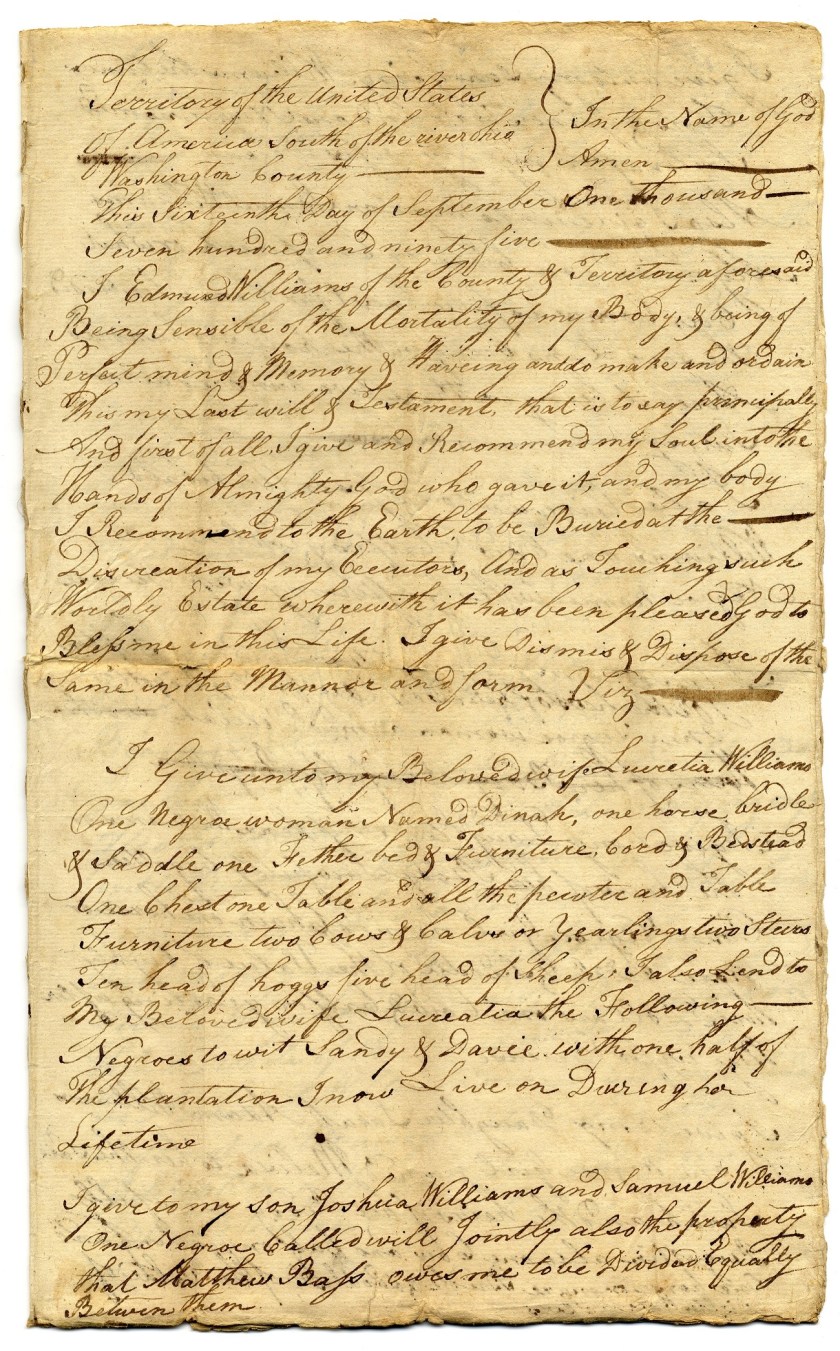 Territory of the United States
Of America South of the river ohio
Washington County
In the Name of God
Amen
This Sixteenth Day of September One thousand
Seven hundred and ninety five
I Edmund Williams of the County & Territory aforesaid
Being Sensible of the Mortality of my Body, & being of
Perfect mind & Memory & Haveing and do make and ordain
This my Last will & Testament, that is to say principally
And first of all, I give and Recommend my Soul into the
Hands of Almighty God who gave it, and my body
I Recommend to the Earth, to be Buried at the
Discreation of my Executors, And as Touching such
Worldly Estate wherewith it has been pleased God to
Bless me in this Life. I give Dismis & Dispose of the
Same in the Mannor and form Viz
I Give unto my Beloved wife Lucretia Williams
One Negroe woman Named Dinah, one horse bridle
& Saddle one Fether bed & Furniture, Cord & Bedstead
One Chest one Table and all the pewter and Table
Furniture two Cows & Calvs or Yearlings two Steers
Ten head of hoggs five head of Sheep, I also Lend to
My Beloved wife Lucreatia the Following
Negroes to wit Sandy & Davie with one half of
The plantation I now Live on During her
Lifetime
I give to my son Joshua Williams and Samuel Williams
One Negroe Called will Jointly also the property
that Matthew Bass owes me to be Divided Equally
Betwen them